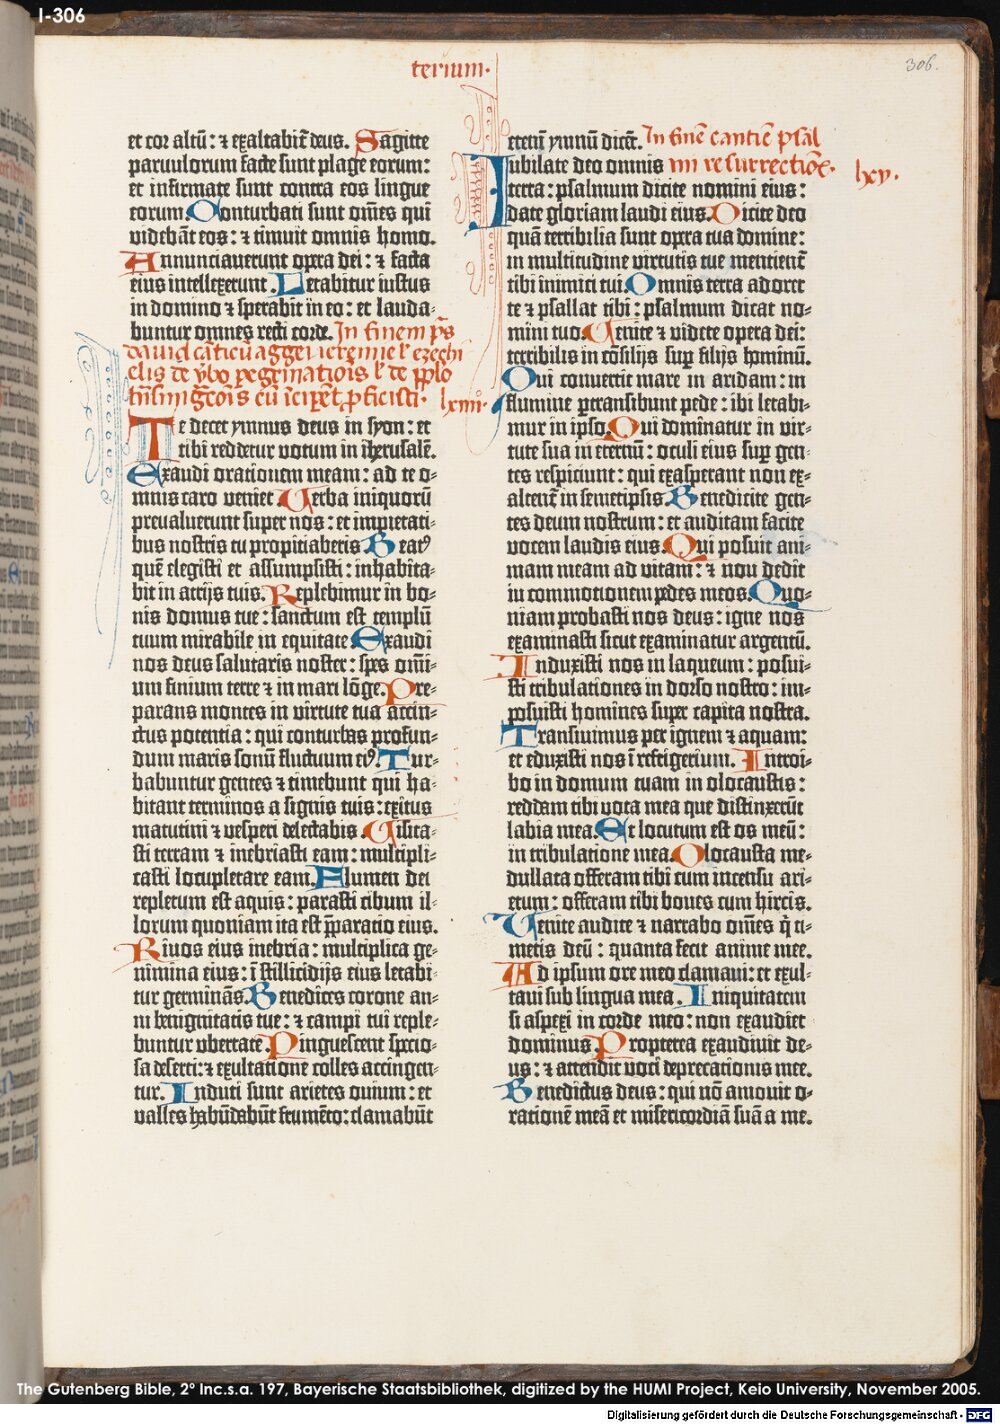 I-306
306.
terium·
et cor altū: ⁊ exaltabit̄ deus. Sagitte
paruulorum facte sunt plage eorum:
et infirmate sunt contra eos lingue
eorum. Conturbati sunt om̄es qui
videbāt eos: ⁊ timuit omnis homo.
Annunciauerunt opera dei: ⁊ facta
eius intellexerunt. Letabitur iustus
in domino ⁊ sperabit in eo: et lauda-
buntur omnes recti corde. In finem ps̄
dauid cāticū aggei ieremie l' ezechi
elis de
lxiiii·
Te decet ymnus deus in syon: et
tibi reddetur votum in ih̄erusalē.
Exaudi orationem meam: ad te o-
mnis caro veniet. Verba iniquorū
preualuerunt super nos: et impietati-
bus nostris tu propitiaberis. Beatꝰ
quē elegisti et assumpsisti: inhabita-
bit in atrijs tuis. Replebimur in bo-
nis domus tue: sanctum est templū
tuum mirabile in equitate. Exaudi
nos deus salutaris noster: spes om̄i-
um finium terre ⁊ in mari lōge. Pre-
parans montes in virtute tua accin-
ctus potentia: qui conturbas profun-
dum maris sonū fluctuum eiꝰ. Tur-
babuntur gentes ⁊ timebunt qui ha-
bitant terminos a signis tuis: exitus
matutini ⁊ vesperi delectabis. Visita-
sti terram ⁊ inebriasti eam: multipli-
casti locupletare eam. Flumen dei
repletum est aquis: parasti cibum il-
lorum quoniam ita est p̄paratio eius.
Riuos eius inebria: multiplica ge-
nimina eius: ī stillicidijs eius letabi-
tur germinās. Benedices corone an-
ni benignitatis tue: ⁊ campi tui reple-
buntur vbertate. Pinguescent specio-
sa deserti: ⁊ exultatione colles accingen-
tur. Induti sunt arietes ouium: et
valles habūdabūt frumēto: clamabūt
etenī ymnū dicēt. In finē canticū psal
Iubilate deo omnis mi resurrectiōis· lxv.
terra: psalmum dicite nomini eius:
date gloriam laudi eius. Dicite deo
quā terribilia sunt opera tua domine:
in multitudine virtutis tue mentient̄
tibi inimici tui. Omnis terra adoret
te ⁊ psallat tibi: psalmum dicat no-
mini tuo. Venite ⁊ videte opera dei:
terribilis in cōsilijs sup̄ filijs hominū.
Qui conuertit mare in aridam: in
flumine ꝑtransibunt pede: ibi letabi-
mur in ipso. Qui dominatur in vir-
tute sua in eternū: oculi eius sup̄ gen-
tes respiciunt: qui exasperant non ex-
altent̄ in semetipsis. Benedicite gen-
tes deum nostrum: et auditam facite
vocem laudis eius. Qui posuit ani-
mam meam ad vitam: ⁊ non dedit
in commotionem pedes meos. Quo-
niam probasti nos deus: igne nos
examinasti sicut examinatur argentū.
Induxisti nos in laqueum: posui-
sti tribulationes in dorso nostro: im-
posuisti homines super capita nostra.
Transiuimus per ignem ⁊ aquam:
et eduxisti nos ī refrigerium. Introi-
bo in domum tuam in olocaustis:
reddam tibi vota mea que distinxerūt
labia mea. Et locutum est os meū:
in tribulatione mea. Olocausta me-
dullata offeram tibi cum incensu ari-
etum: offeram tibi boues cum hircis.
Venite audite ⁊ narrabo om̄es q̄ ti-
metis deū: quanta fecit anime mee.
Ad ipsum ore meo clamaui: et exul-
taui sub lingua mea. Iniquitatem
si aspexi in corde meo: non exaudiet
dominus. Propterea exaudiuit de-
us: ⁊ attendit voci deprecationis mee.
Benedictus deus: qui nō amouit o-
rationē meā et misericordiā suā a me.
The Gutenberg Bible, 2º Inc.s.a. 197, Bayerische Staatsbibliothek, digitized by the HUMI Project, Keio University, November 2005.
Digitalisierung gefördert durch die Deutsche Forschungsgemeinschaft - DFG